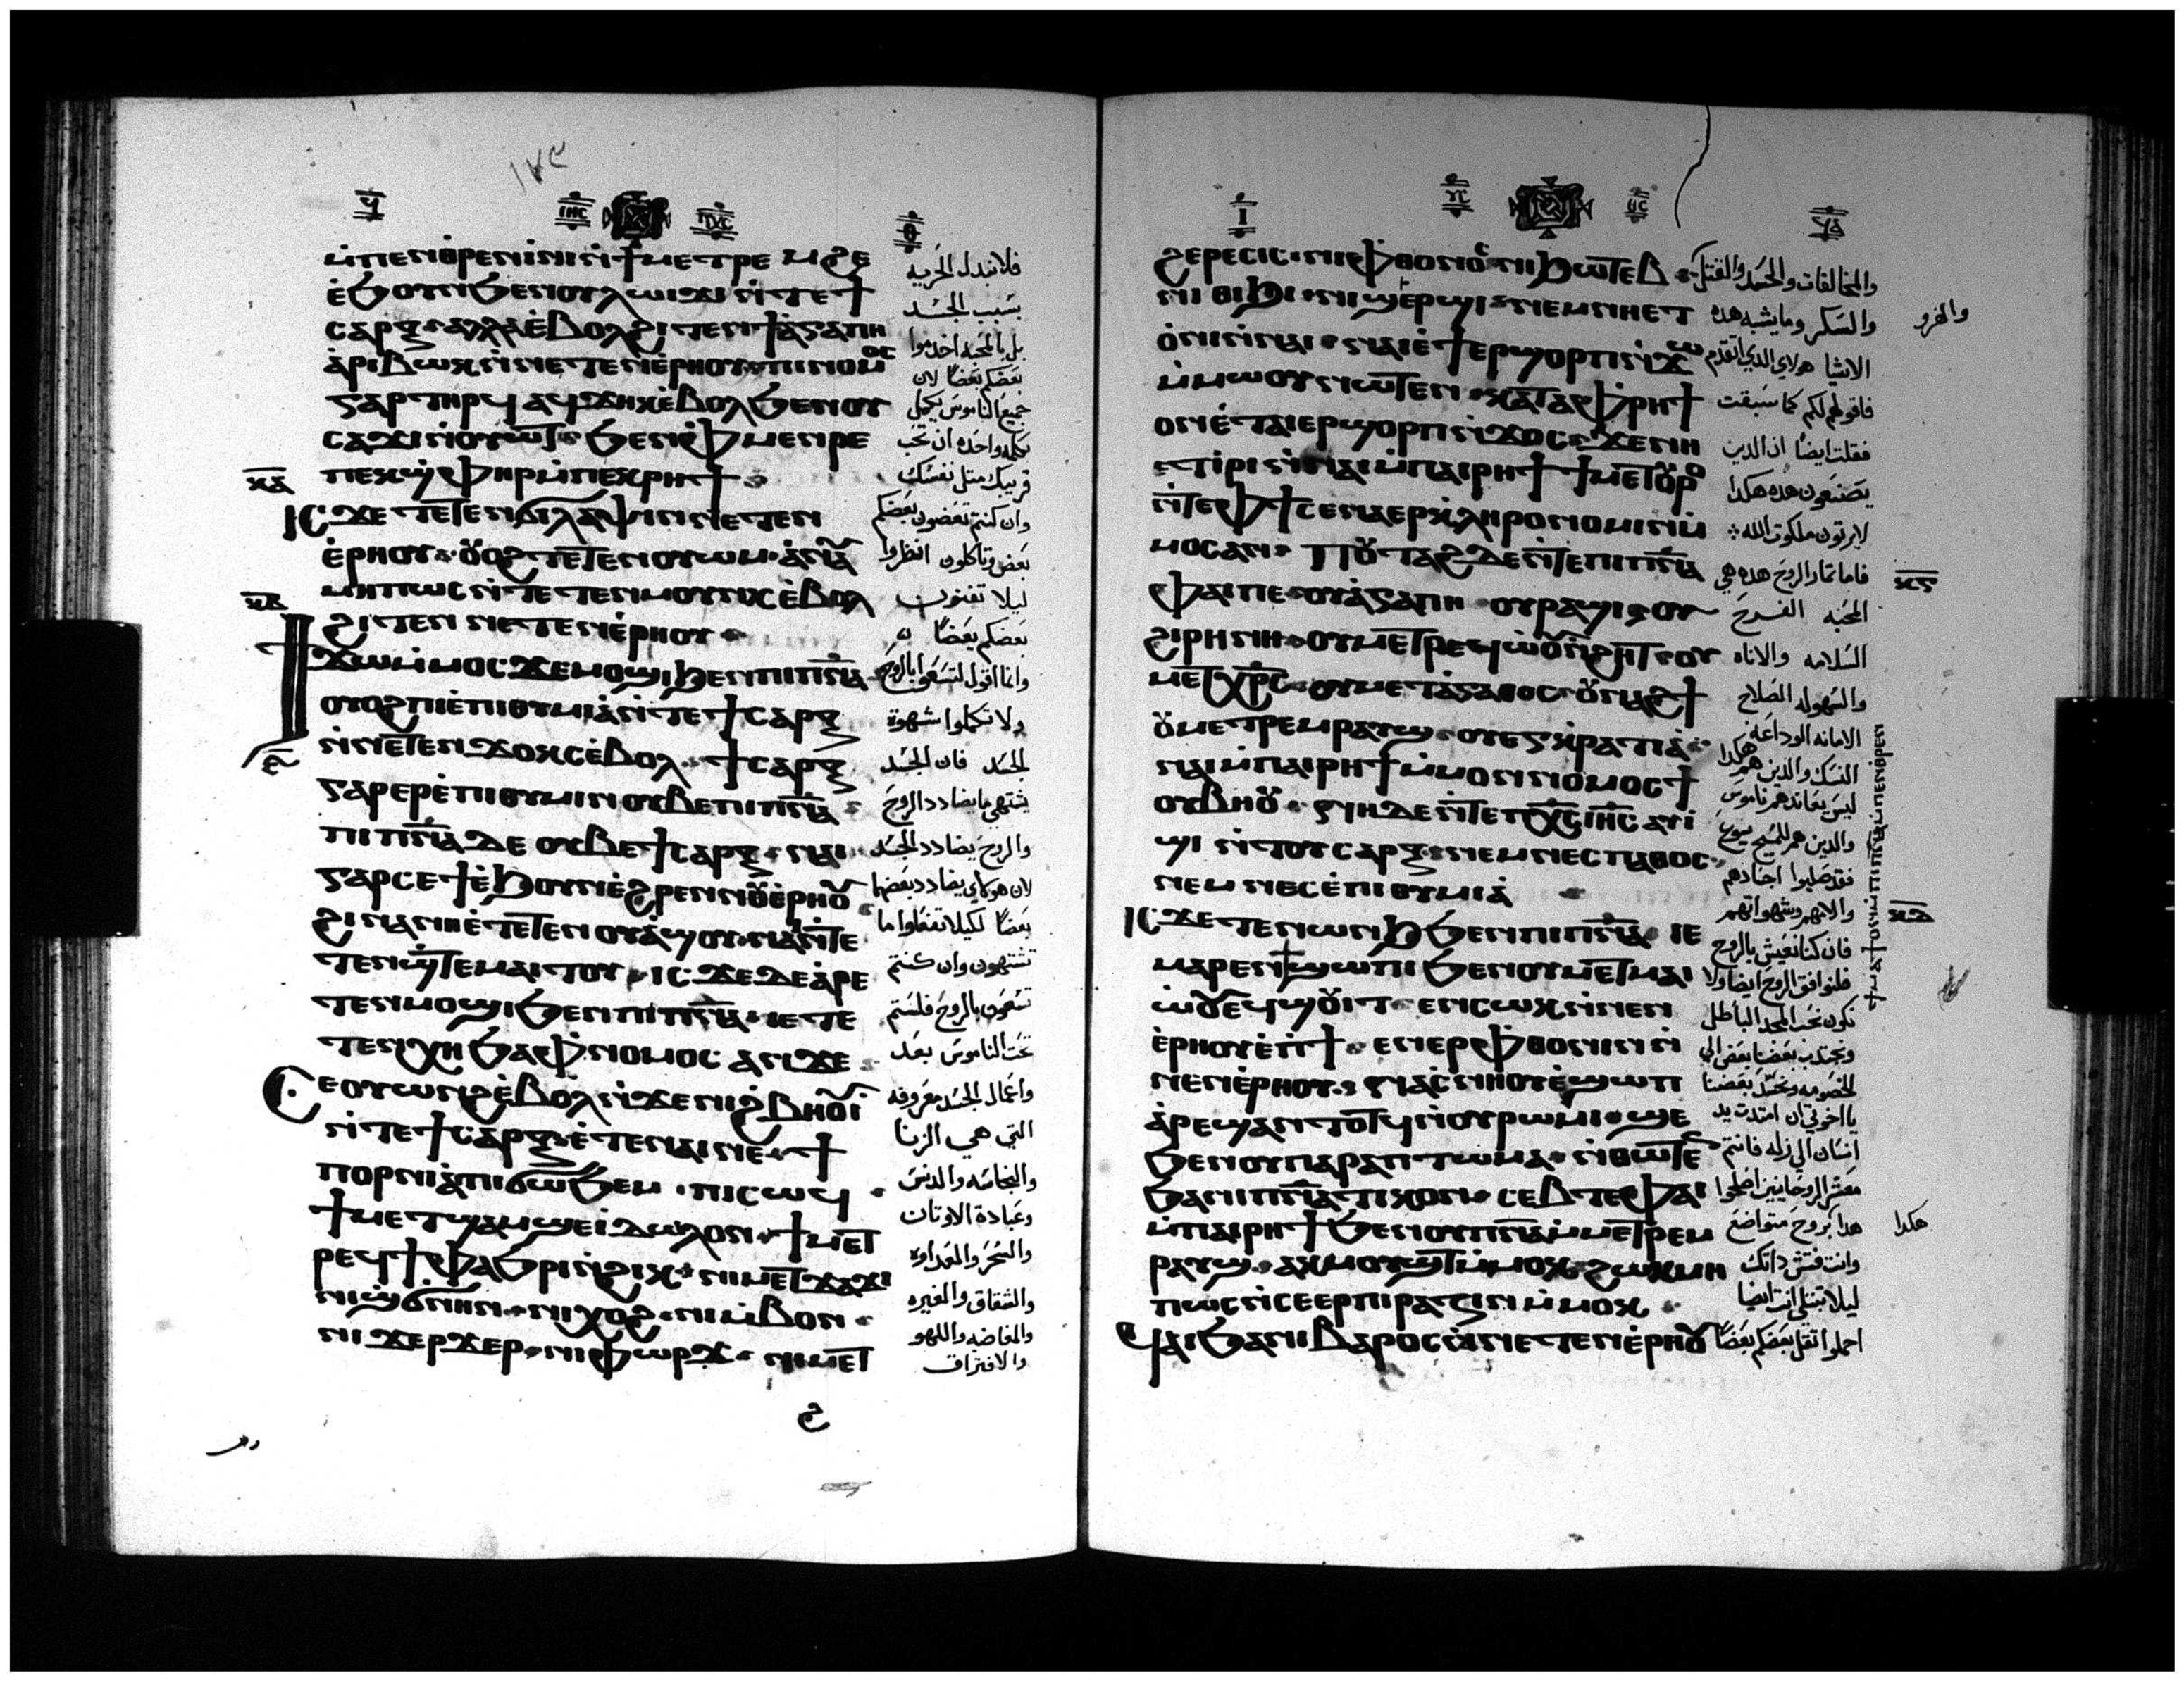 ⲙ̀ⲡⲉⲛⲑⲣⲉⲛⲓⲛⲓ ⲛ̀ϯⲙⲉⲧⲣⲉⲙϩⲉ
ⲉ̀ϧⲟⲩⲛ ϧⲉⲛⲟⲩⲗⲱⲓϫⲓ ⲛ̀ⲧⲉϯ
ⲥⲁⲣⲝ ⲁⲗⲗⲁ ⲉ̀ⲃⲟⲗϩⲓⲧⲉⲛϯⲁ̀ⲅⲁⲡⲏ
ⲁ̀ⲣⲓⲃⲱⲕ ⲛ̀ⲛⲉⲧⲉⲛⲉ̀ⲣⲏⲟⲩ ⲡⲓⲛⲟⲙⲟⲥ
ⲅⲁⲣ ⲧⲏⲣϥ ⲁϥϫⲏⲕ ⲉ̀ⲃⲟⲗ ϧⲉⲛⲟⲩ
ⲥⲁϫⲓ ⲛ̀ⲟⲩⲱⲧ ϧⲉⲛⲫⲙⲉⲛⲣⲉ
ⲡⲉⲕϣⲫⲏⲣ ⲙ̀ⲡⲉⲕⲣⲏϯ
ⲓⲥϫⲉ ⲧⲉⲧⲉⲛϭⲓⲗⲁⲯⲓ ⲛ̀ⲛⲉⲧⲉⲛ
ⲉ̀ⲣⲏⲟⲩ ⲟⲩⲟϩ ⲧⲉⲧⲉⲛⲟⲩⲱⲙ ⲁ̀ⲛⲁⲩ
ⲙⲏⲡⲱⲥ ⲛ̀ⲧⲉⲧⲉⲛⲙⲟⲩⲛⲕ ⲉ̀ⲃⲟⲗ
ϩⲓⲧⲉⲛ ⲛⲉⲧⲉⲛⲉ̀ⲣⲏⲟⲩ
ϯϫⲱ ⲙ̀ⲙⲟⲥ ϫⲉ ⲙⲟϣⲓ ϧⲉⲛⲡⲓⲡ̅ⲛ̅ⲁ̅
ⲟⲩⲟϩ ϯⲉ̀ⲡⲓⲑⲩⲙⲓⲁ̀ ⲛ̀ⲧⲉϯⲥⲁⲣⲝ
ⲛ̀ⲛⲉⲧⲉⲛϫⲟⲕⲥ ⲉ̀ⲃⲟⲗ ϯⲥⲁⲣⲝ
ⲅⲁⲣ ⲉⲣⲉ̀ⲡⲓⲑⲩⲙⲓⲛ ⲟⲩⲃⲉ ⲡⲓⲡ̅ⲛ̅ⲁ̅
ⲡⲓⲡ̅ⲛ̅ⲁ̅ ⲇⲉ ⲟⲩⲃⲉ ϯⲥⲁⲣⲝ ⲛⲁⲓ
ⲅⲁⲣ ⲥⲉϯ ⲉ̀ϧⲟⲩⲛ ⲉ̀ϩⲣⲉⲛ ⲛⲟⲩⲉ̀ⲣⲏⲟⲩ
ϩⲓⲛⲁ ⲛⲏ ⲉ̀ⲧⲉⲧⲉⲛⲟⲩⲁ̀ϣⲟⲩ ⲛⲁⲓ ⲛ̀ⲧⲉ
ⲧⲉⲛϣⲧⲉⲙⲁⲓⲧⲟⲩ ⲓⲥϫⲉ ⲇⲉ ⲁ̀ⲣⲉ
ⲧⲉⲛⲙⲟϣⲓ ϧⲉⲛⲡⲓⲡ̅ⲛ̅ⲁ̅ ⲓⲉ ⲧⲉ
ⲧⲉⲛⲭⲏ ϧⲁ ⲫⲛⲟⲙⲟⲥ ⲁⲛ ϫⲉ
ⲥⲉⲟⲩⲱⲛϩ ⲉ̀ⲃⲟⲗ ⲛ̀ϫⲉ ⲛⲓϩⲃⲏⲟⲩⲓ̀
ⲛ̀ⲧⲉϯⲥⲁⲣⲝ ⲉ̀ⲧⲉ ⲛⲁⲓ ⲛⲉ ϯ
ⲡⲟⲣⲛⲓⲁ̀ ⲡⲓϭⲱϧⲉⲙ ⲡⲓⲥⲱϥ
ϯⲙⲉⲧϣⲁⲙϣⲉⲓ̀ⲇⲱⲗⲟⲛ ϯⲙⲉⲧ
ⲣⲉϥϯⲫⲁϧⲣⲓ ⲛ̀ϩⲓⲕ ⲛⲓⲙⲉⲧϫⲁϫⲓ
ⲛⲓϣϭⲛⲏⲛ ⲛⲓⲭⲟϩ ⲛⲓⲙ̀ⲃⲟⲛ
ⲛⲓϫⲉⲣϫⲉⲣ ⲛⲓⲫⲱⲣϫ ⲛⲓⲙⲉⲧ
فلا نبدل الحريه
بسبب الجسد
بل بالمحبه اخدموا
بعضكم بعضًا لان
جميع الناموس يكمل
بكلمه واحده ان تحب
قريبك مثل نفسك
وان كنتم تعضون بعضكم
بعض وتاكلون انظروا
ليلا تفنون
بعضكم بعضًا
وانا اقول لتسعوا بالروح
ولا تكملوا شهوة
الجسد فان الجسد
يشتهي ما يضادد الروح
والروح يضادد الجسد
لان هولاي يضادد بعضها
بعضًا لكيلا تفعلوا ما
تشتهون وان كنتم
تسعون بالروح فلستم
تحت الناموس بعد
واعمال الجسد معروفه
التي هي الزنا
والنجاسه والدنس
وعبادة الاوتان
والسحر والعداوه
والشقاق والغيره
والمغاضبه واللهو
والافتراق
ϩⲉⲣⲉⲥⲓⲥ ⲛⲓⲫⲑⲟⲛⲟⲥ ⲛⲓϧⲱⲧⲉⲃ
ⲛⲓⲑⲓϧⲓ ⲛⲓϣⲉⲣϣⲓ ⲛⲉⲙ ⲛⲏⲉⲧ
ⲟ̀ⲛⲓ ⲛ̀ⲛⲁⲓ ⲛⲁⲓ ⲉ̀ϯⲉⲣϣⲟⲣⲡ ⲛ̀ϫⲱ
ⲙ̀ⲙⲱⲟⲩ ⲛⲱⲧⲉⲛ ⲕⲁⲧⲁ ⲫⲣⲏϯ
ⲟⲛ ⲉ̀ⲧⲁⲓⲉⲣϣⲟⲣⲡ ⲛ̀ϫⲟⲥ ϫⲉ ⲛⲏ
ⲉⲧⲓ̀ⲣⲓ ⲛ̀ⲛⲁⲓ ⲙ̀ⲡⲁⲓⲣⲏϯ ϯⲙⲉⲧⲟⲩⲣⲟ
ⲛ̀ⲧⲉ ⲫϯ ⲥⲉⲛⲁⲉⲣⲕ̀ⲗⲏⲣⲟⲛⲟⲙⲓⲛ ⲙ̀
ⲙⲟⲥ ⲁⲛ ⲡⲟⲩⲧⲁϩ ⲇⲉ ⲛ̀ⲧⲉ ⲡⲓⲡ̅ⲛ̅ⲁ̅
ⲫⲁⲓ ⲡⲉ ⲟⲩⲁ̀ⲅⲁⲡⲏ ⲟⲩⲣⲁϣⲓ ⲟⲩ
ϩⲓⲣⲏⲛⲏ ⲟⲩⲙⲉⲧⲣⲉϥⲱ̀ⲟⲩⲛ̀ϩⲏⲧ ⲟⲩ
ⲙⲉⲧⲭⲣⲥ ⲟⲩⲙⲉⲧⲁ̀ⲅⲁⲑⲟⲥ ⲟⲩⲛⲁϩϯ
ⲟⲩⲙⲉⲧⲣⲉⲙⲣⲁⲩϣ ⲟⲩⲉⲅⲕⲣⲁⲧⲓⲁ̀
ⲛⲁⲓ ⲙ̀ⲡⲁⲓⲣⲏϯ ⲙ̀ⲙⲟⲛ ⲛⲟⲙⲟⲥ ϯ
ⲟⲩⲃⲏⲟⲩ ⲛⲏ ⲇⲉ ⲛ̀ⲧⲉ ⲡⲭⲥ ⲓⲏⲥ ⲁⲩⲓ̀
ϣⲓ ⲛ̀ⲧⲟⲩⲥⲁⲣⲝ ⲛⲉⲙ ⲛⲉⲥⲡⲁⲑⲟⲥ
ⲛⲉⲙ ⲛⲉⲥⲉ̀ⲡⲓⲑⲩⲙⲓⲁ̀
ⲓⲥϫⲉ ⲧⲉⲛⲱⲛϧ ϧⲉⲛⲡⲓⲡ̅ⲛ̅ⲁ̅ ⲓⲉ
ⲙⲁⲣⲉⲛϣⲱⲡⲓ ϧⲉⲛⲟⲩⲙⲉⲧⲙⲁⲓ
ⲱ̀ⲟⲩ ⲉϥϣⲟⲩⲓⲧ ⲉⲛⲥⲱⲕ ⲛ̀ⲛⲉⲛ
ⲉ̀ⲣⲏⲟⲩ ⲉ̀ⲡϯ ⲉⲛⲉⲣⲫⲑⲟⲛⲓⲛ ⲛ̀
ⲛⲉⲛⲉ̀ⲣⲏⲟⲩ ⲛⲁⲥⲛⲏⲟⲩ ⲉ̀ϣⲱⲡ
ⲁ̀ⲣⲉϣⲁⲛ ⲧⲟⲧϥ ⲛ̀ⲟⲩⲣⲱⲙⲓ ϣⲉ
ϧⲉⲛⲟⲩⲡⲁⲣⲁⲡⲧⲱⲙⲁ ⲛ̀ⲑⲱⲧⲉⲛ
ϧⲁ ⲛⲓⲡ̅ⲛ̅ⲁ̅ⲧⲓⲕⲟⲛ ⲥⲉⲃⲧⲉ ⲫⲁⲓ
ⲙ̀ⲡⲁⲓⲣⲏϯ ϧⲉⲛⲟⲩⲡ̅ⲛ̅ⲁ̅ ⲙ̀ⲙⲉⲧⲣⲉⲙ
ⲣⲁⲩϣ ⲁⲕⲙⲟⲩϣⲧ ⲙ̀ⲙⲟⲕ ϩⲱⲕ ⲙⲏ
ⲡⲱⲥ ⲛ̀ⲥⲉⲉⲣⲡⲓⲣⲁⲍⲓⲛ ⲙ̀ⲙⲟⲕ
ϥⲁⲓ ϧⲁ ⲛⲓⲃⲁⲣⲟⲥ ⲛ̀ⲛⲉⲧⲉⲛⲉ̀ⲣⲏⲟⲩ
والمخالفات والحسد والقتل
والسكر وما يشبه هده
الاشيا هولاي الدي اتقدم
فاقولهم لكم كما سبقت
فقلت ايضا ان الدين
يصنعون هده هكدا
لا يرتون ملكوت الله
فاما تمار الروح هده هي
المحبه الفرح
السلامه والاناه
والسهوله الصلاح
الامانه الوداعه
النسك والدين هم هكدا
ليس يعاندهم ناموس
والدين هم للمسيح يسوع
فقد صلبوا اجسادهم
والامهم وشهواتهم
فان كنا نعيش بالروح
فلنوافق الروح ايضا ولا
نكون نحب المجد الباطل
ونجتدب بعضنا بعض الي
الخصومه ونحسد بعضنا
يا اخوتي ان امتدت يد
انسان الي زله فانتم
معشر الروحانيين اصلحوا
هدا بروح متواضع
وانت فتش داتك
ليلا تبتلي انت ايضا
احملوا تقل بعضكم بعضًا
هكدا